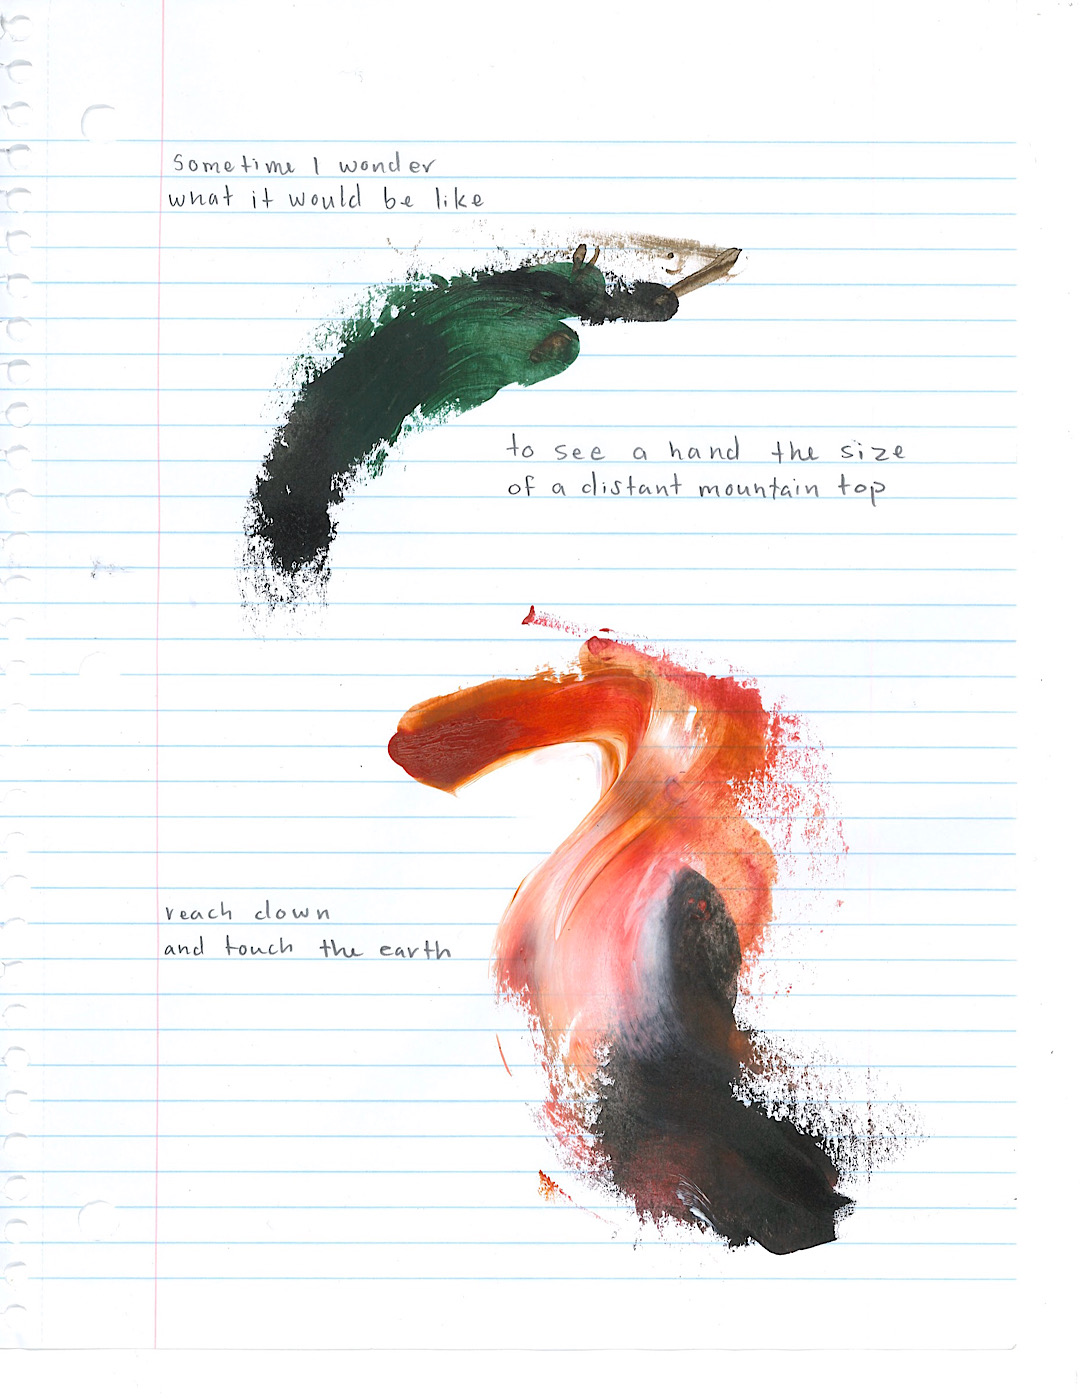 Sometime I wonder
what it would be like
to see a hand the size
of a distant mountain top
reach down
and touch the earth